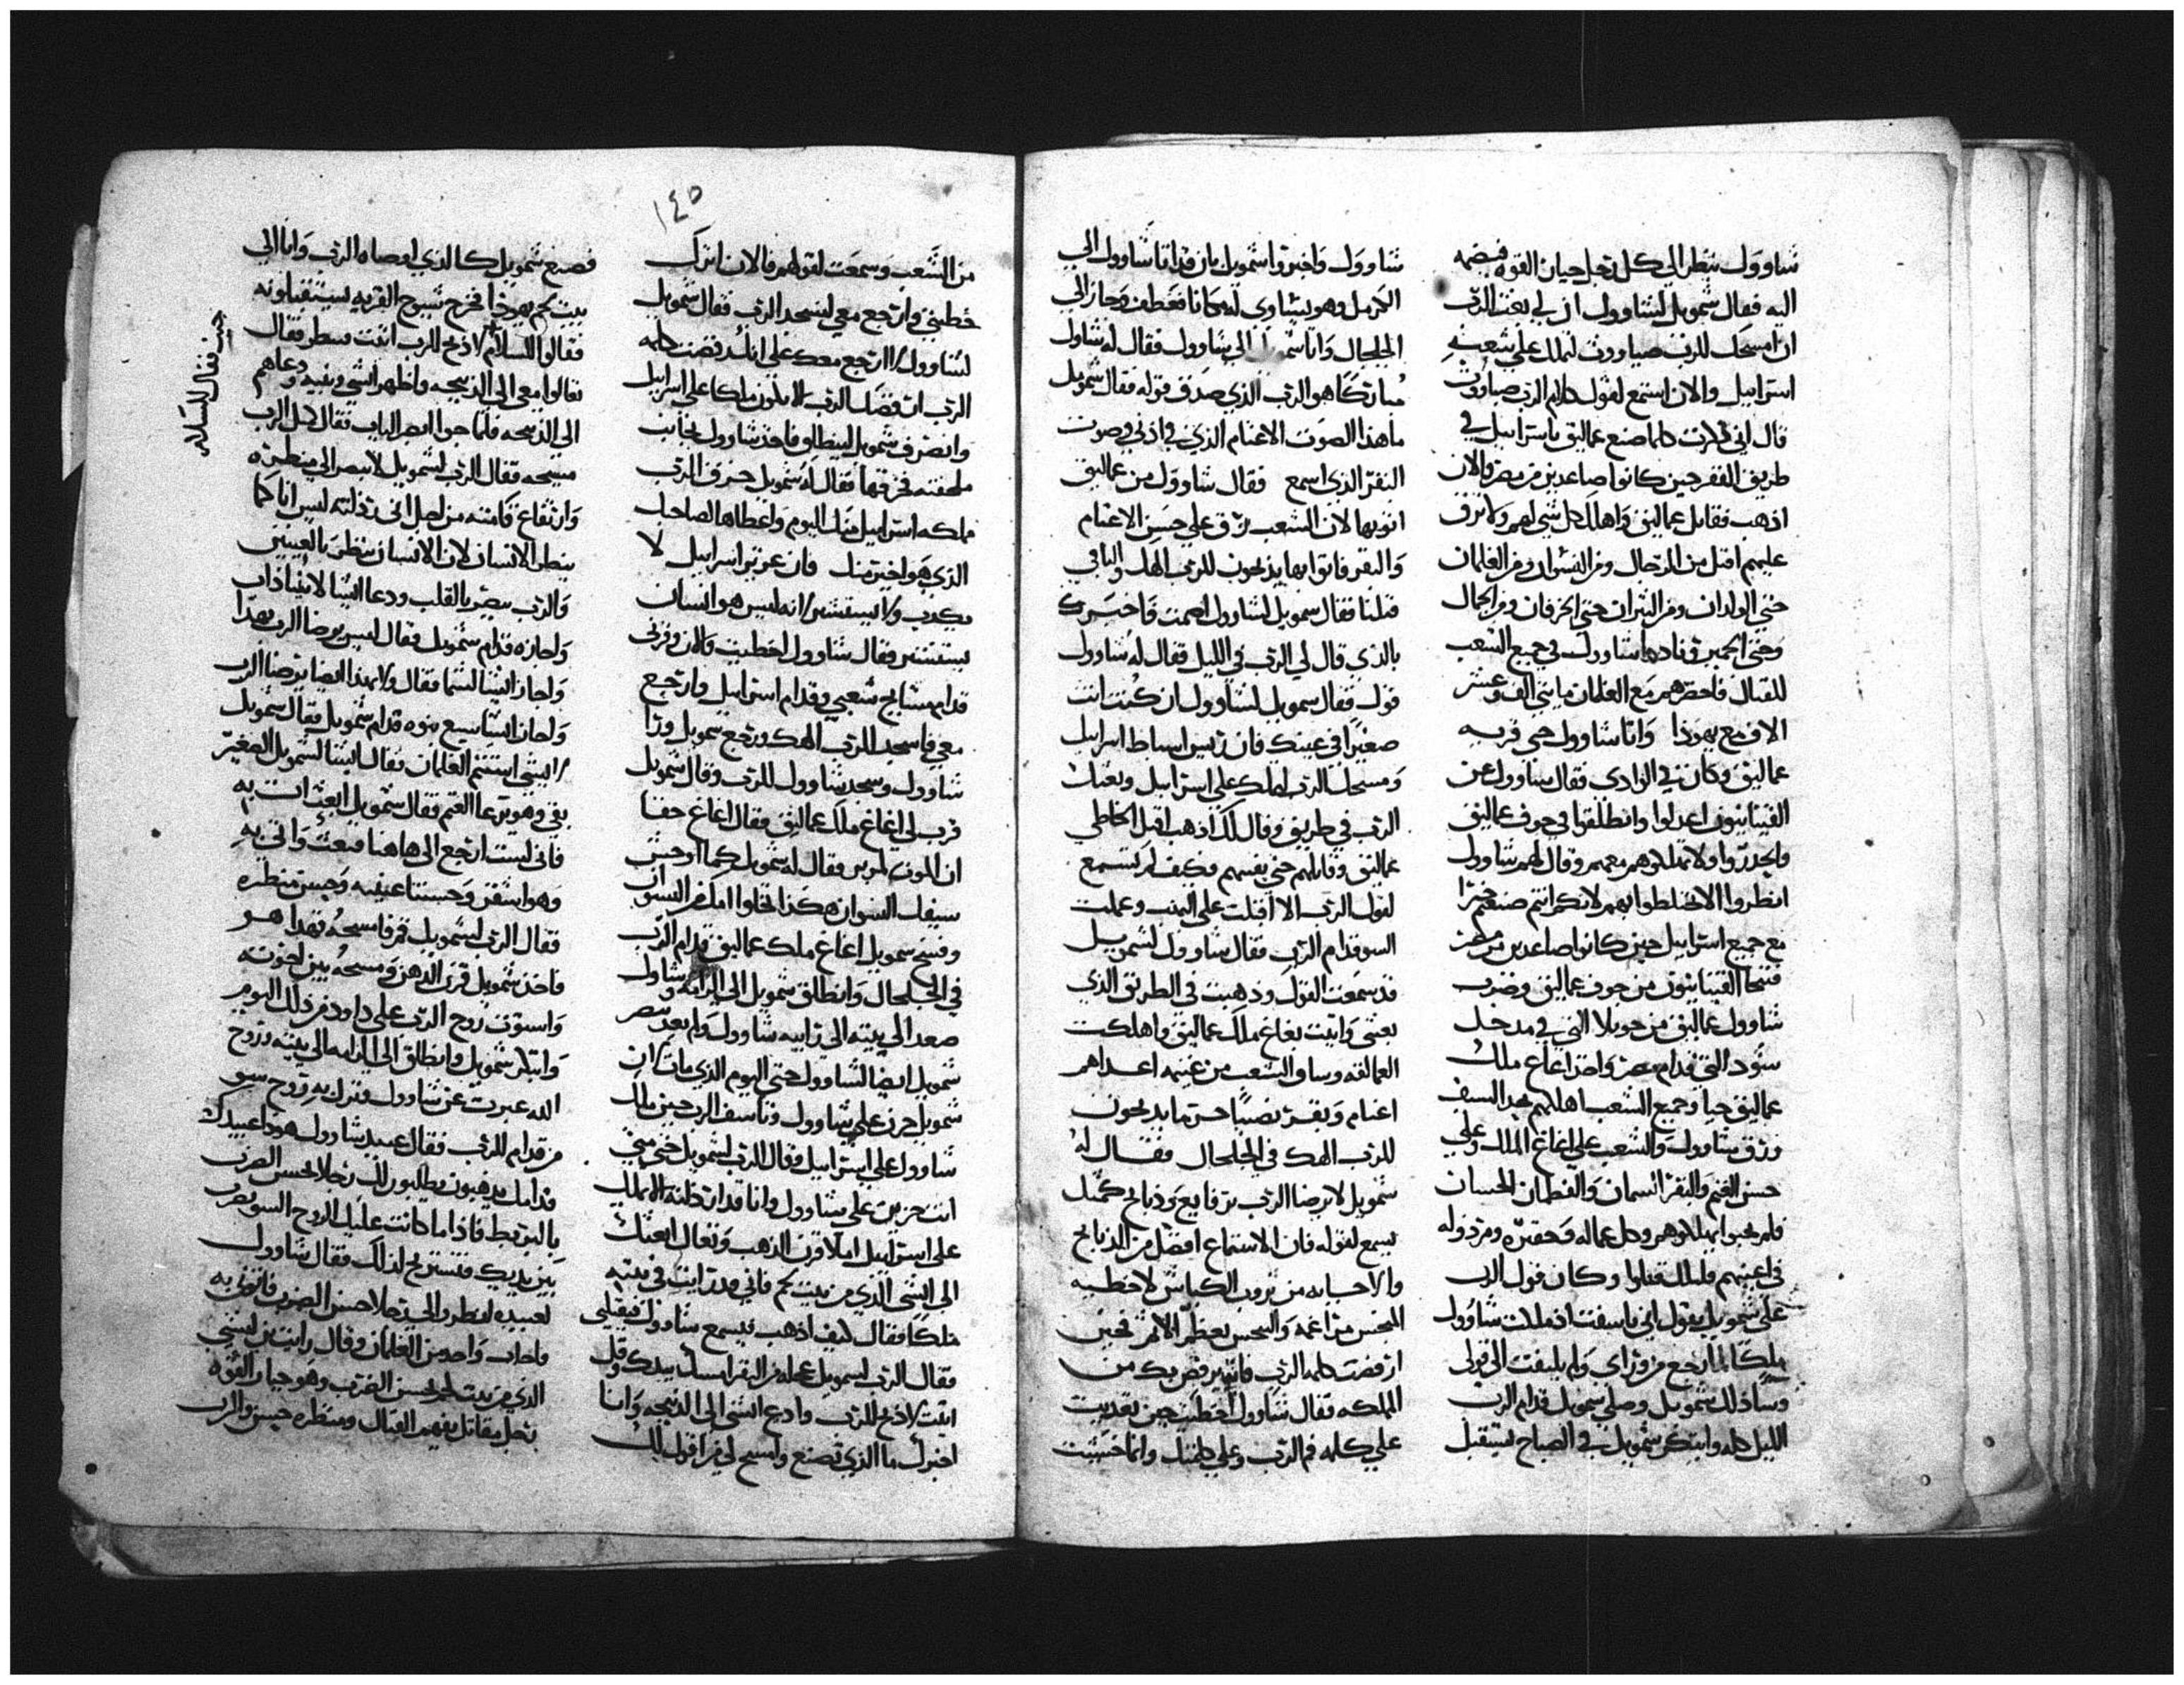 شاوول ينظر الي كل رجل جبار القوه فيضمه
اليه فقال شمويل لشاوول ان لي بعث الرب
ان امسحك للرب صباووت لتملك علي شعبه
اسراييل والان استمع لقول كلام الرب صباووت
قال اني ذكرت كلما صنع عماليق باسراييل في
طريق القفر حين كانوا صاعدين من مصر والان
اذهب فقاتل عماليق واهلك كل شي لهم ولا ترف
عليهم اقتل من الرجال ومن النسوان ومن الغلمان
حتي الولدان ومن الثيران حتي الخرفان ومن الجمال
وحتي الحمير فنادا شاوول في جميع الشعب
للقتال فاحصرهم مع الغلمان مايتي الف وعشر
الاف مع يهوذا واتا شاوول حتي قريه
عماليق وكان في الوادي فقال شاوول عن
القينانيون اعدلوا وانطلقوا من جوف عماليق
ولا تهلكوهم معهم وقال لهم شاوول
انظروا الا تختلطوا بهم لانكم انتم صنعتم خيرا
مع جميع اسراييل حين كانوا صاعدين من مصر
فتنحا القينانيون من جوف عماليق وضرب
شاوول عماليق من حويلا التي في مدخل
سود التي قدام مصر واخذ اغاغ ملك
عماليق حيا وجميع الشعب اهلكهم بحد السيف
ورق شاوول والشعب علي اغاغ الملك وعلي
حسن الغنم والبقر السمان والقطعان الحسان
فلم يحبوا يهلكوهم وكل عماله وحقيره ومرذوله
في اعينهم فلذلك قتلوا وكان قول الرب
علي شمويل يقول اني تاسفت اذ ملكت شاوول
ملكا لما رجع من وراي ولم يلتفت الي قولي
وسا ذلك شمويل وصلي شمويل قدام الرب
الليل كله وابتكر شمويل في الصباح ليستقبل
شاوول واخبروا شمويل بان قد اتا شاوول الي
الكرمل وهو يساوي له مكانا فعطف وجاز الي
الجلجال واتا شمويل الي شاوول فقال له شاول
مباركا هو الرب الذي صدق قوله فقال شمويل
ما هذا الصوت الاغنام الذي في اذني وصوت
البقر الذي اسمع فقال شاوول من عماليق
اتوا بها لان الشعب رق علي حسن الاغنام
والبقر فاتوا بها يذبحون للرب الهك والباقي
قتلنا فقال شمويل لشاوول اصمت فاخبرك
بالذي قال لي الرب في الليل فقال له شاوول
قول فقال شمويل لشاوول ان كنت انت
صغيرا في عينيك فان رييس اسباط اسراييل
ومسحك الرب لملك علي اسراييل وبعثك
الرب في طريق وقال لك اذهب اقتل الخاطي
عماليق وقاتلهم حتي تفنيهم فكيف لم تستمع
لقول الرب الا اقبلت علي النهب وعملت
السو قدام الرب فقال شاوول لشمويل
قد سمعت القول وذهبت في الطريق الذي
بعثني واتيت بغاغ ملك عماليق واهلكت
العمالقه وساق الشعب من غنيمه اعداهم
اغنام وبقر نصيبا حرم ما يذبحون
للرب الهك في الجلجال فقال له
شمويل لا يرضا الرب برفايع وذبايح كمثل
يسمع لقوله فان الاستماع افضل من الذبايح
والاجابه من ثروب الكباش لا خطيه
ارفضت كلمه الرب فانه يرفض بك من
المملكه فقال شاوول اخطيت حين تعديت
علي كلمه فم الرب وعلي كلمتك وانما خشيت
١٤٥
من الشعب وسمعت لقولهم فالان اترك
خطيتي وارجع معي لنسجد الرب فقال شمويل
لشاوول لا ارجع معك علي انك رفضت كلمه
الرب ان فضل الرب الا تكون ملكا علي اسراييل
وانصرف شمويل لينطلق فاخذ شاوول بجانب
ملحفته فخرقها فقال له شمويل خرق الرب
ملكه اسراييل منك اليوم واعطاها لصاحبك
الذي هو اخير منك فان عزيز اسراييل لا
يكدب ولا يستشير انه ليس هو انسان
يستشير فقال شاوول اخطيت والان وقرني
قدام مشايخ شعبي وقدام اسراييل وارجع
معي فاسجد للرب الهك ورجع شمويل ورا
شاوول وسجد شاوول للرب وقال شمويل
قرب لي اغاغ ملك عماليق فقال اغاغ حقا
ان الموت لمرير فقال له شمويل كما اوحش
سيفك النسوان هكذا تخلوا امك من النسوان
وفسخ شمويل اغاغ ملك عماليق قدام الرب
في الجلجال وانطلق شمويل الي الرامه وشاول
صعد الي بيته الي رابيه شاوول ولم يعد يبصر
شمويل ايضا لشاوول حتي اليوم الذي مات ان
شمويل حزن علي شاوول وتاسف الرب حين ملك
شاوول علي اسراييل فقال الرب لشمويل حتي متي
انت حزين علي شاوول وانا قد ارذلته الا يملك
علي اسراييل املا قرن الدهن وتعال ابعثك
الي ايشي الذي من بيت لحم فاني قد رايت في بنيه
ملكا فقال كيف اذهب فيسمع شاوول فيقتلني
فقال الرب لشمويل عجله من البقر امسك بيدك وقل
اتيت لاذبح للرب وادع ايشي الي الذبيحه وانا
اخبرك ما الذي تصنع وامسح لي من اقول لك
فصنع شمويل كالذي اوصاه الرب واتا الي
بيت لحم يهوذا فخرج شيوخ القريه ليستقبلونه
فقالوا للسلام لاذبح للرب اتيت فقال
تعالوا معي الي الذبيحه واظهر ايشي وبنيه ودعاهم
الي الذبيحه فلما جوا ابصر الياب فقال كمثل الرب
مسيحه فقال الرب لشمويل لا تبصر الي منظره
وارتفاع قامته من اجل اني رذلته ليس انا كما
ينظر الانسان لان الانسان ينظر بالعينين
والرب يبصر بالقلب ودعا ايشا لابيناذاب
واجازه قدام شمويل فقال ليس يرضا الرب بهذا
واجاز ايشا لشما فقال ولا بهذا ايضا يرضا الرب
واجاز ايشا سبع بنوه قدام شمويل فقال شمويل
لايشي استتم الغلمان فقال ايشا لشمويل الصغير
بقي وهو يرعا الغنم فقال شمويل ابعث ات به
فاني لست ارجع الي هاهنا فبعث واتي به
وهو اشقر وحسنتا عينيه وحسن منظره
فقال الرب لشمويل قم فامسحه فهذا هو
فاخذ شمويل قرن الدهن ومسحه بين اخوته
واستوت روح الرب علي داود من ذلك اليوم
وابتكر شمويل وانطلق الي الرامه الي بيته وروح
الله عبرت عن شاوول وتزلزله روح سو
من قدام للرب فقال عبيد شاوول هوذا عبيدك
قدامك يذهبون يطلبون لك رجلا يحسن الضرب
بالبربط فاذا ما كانت عليك الروح السو يضرب
بين يديك فتستريح لذلك فقال شاوول
لعبيده انظروا لي رجلا حسن الضرب فاتوني به
فاجاب واحد من الغلمان وقال رايت ابن ليشي
الذي من بيت لحم يحسن الضرب وهو جبار القوه
رجل مقاتل يفهم القتال ومنظره حسن والرب
حيت فقال للسلام